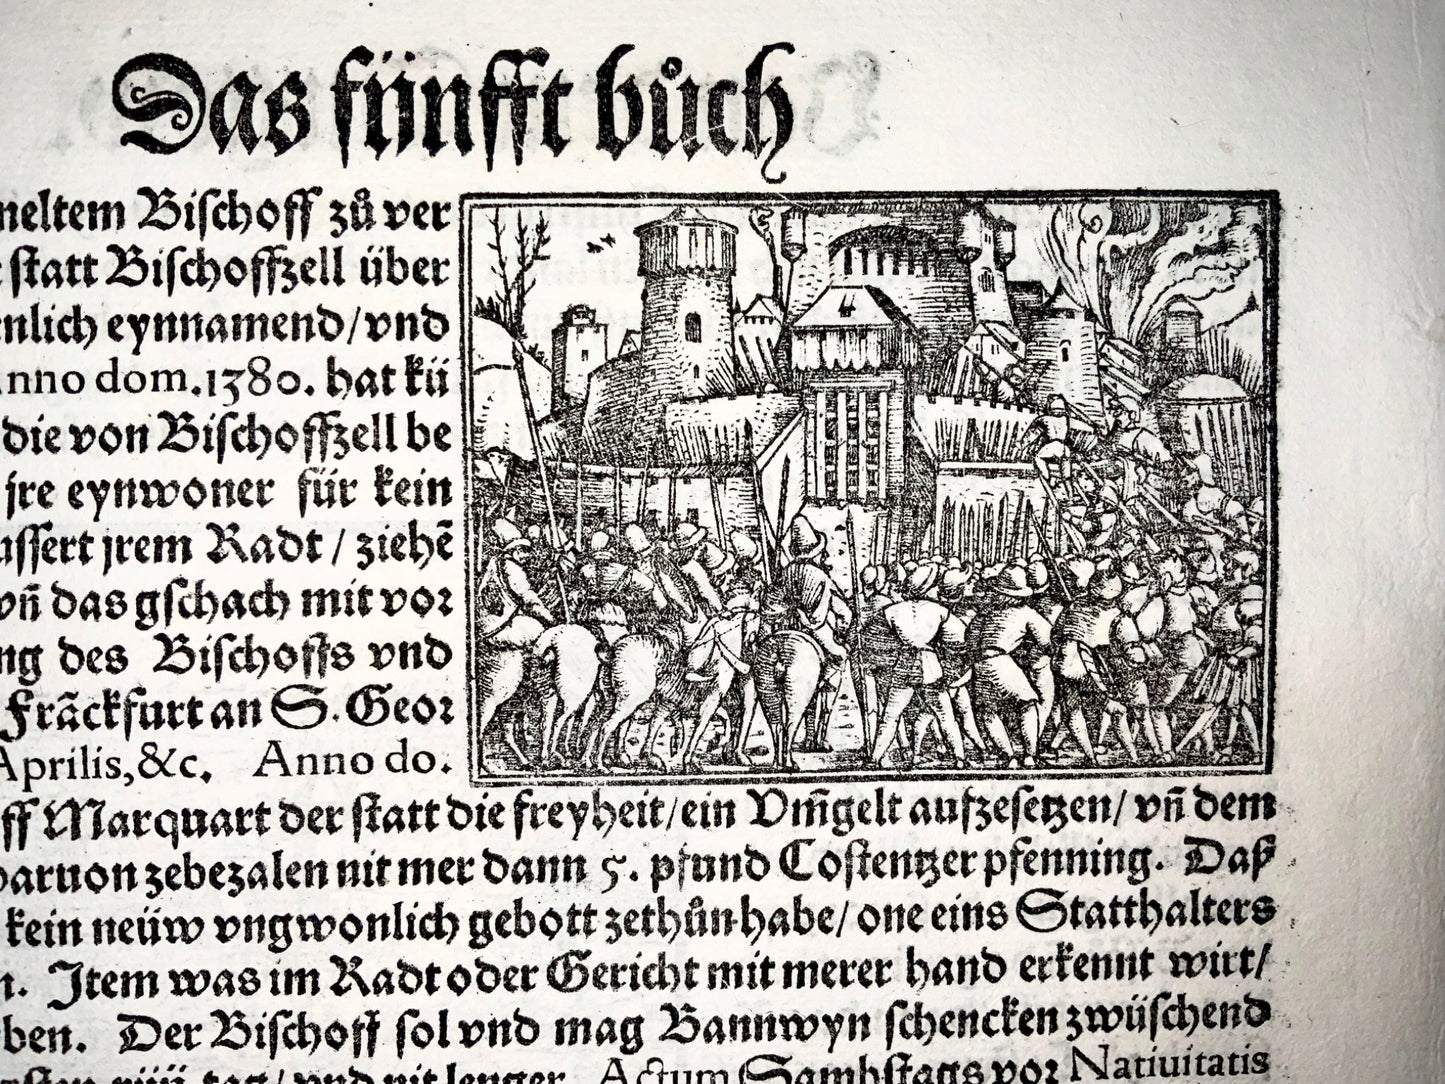 Das fünfft bůch
meltem Bischoff zů ver
statt Bischoffzell über
enlich eynnamend/vnd
Anno dom.1380. hat kü
die von Bischoffzell be
jre eynwoner für kein
ussert jrem Radt / ziehē
vñ das gschach mit vor
ng des Bischoffs vnd
Frãckfurt an S. Geor
Aprilis,&c. Anno do.
ff Marquart der statt die freyheit/ein Vm̃gelt aufzesetzen/ vñ dem
daruon zebezalen nit mer dann 5. pfund Costentzer pfenning. Daß
kein neüw vngwonlich gebott zethůn habe/ one eins Statthalters
n. Item was im Radt oder Gericht mit merer hand erkennt wirt/
ben. Der Bischoff sol vnd mag Bannwyn schencken zwüschend
tag/ vnd nit lenger. Actum Sambstags vor Natiuitatis